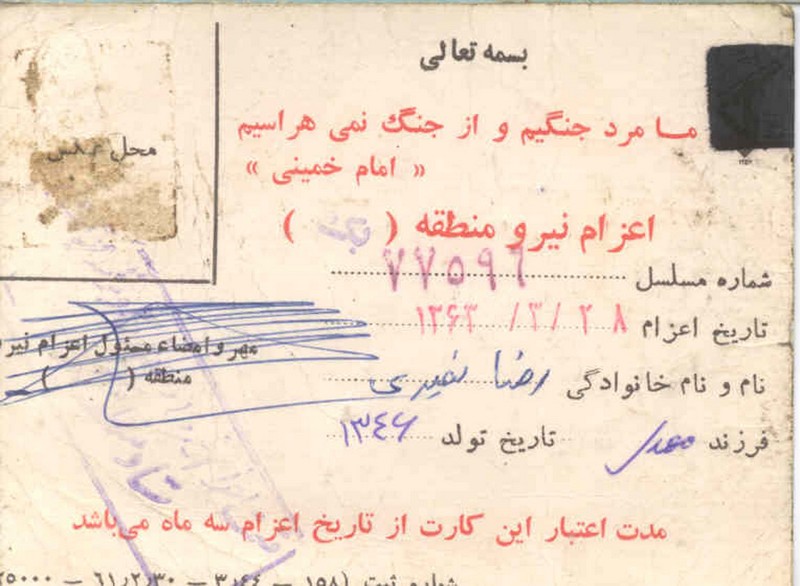 بسمه تعالی
ما مرد جنگیم و از جنگ نمی هراسیم
« امام خمینی »
محل عکس
اعزام نیرو منطقه ( )
شماره مسلسل ۷۷۵۹۶
تاریخ اعزام ۲۸ /۳/ ۱۳۶۳
نام و نام خانوادگی رضا نصیری
مهر و امضاء مسئول اعزام نیرو
منطقه ( )
فرزند تاریخ تولد ۱۳۴۶
مدت اعتبار این کارت از تاریخ اعزام سه ماه می‌باشد
شماره ثبت (۱۵۸ – ۳٫۴۴ – ۶۱٫۲٫۳۰ – ۲۵۰۰۰